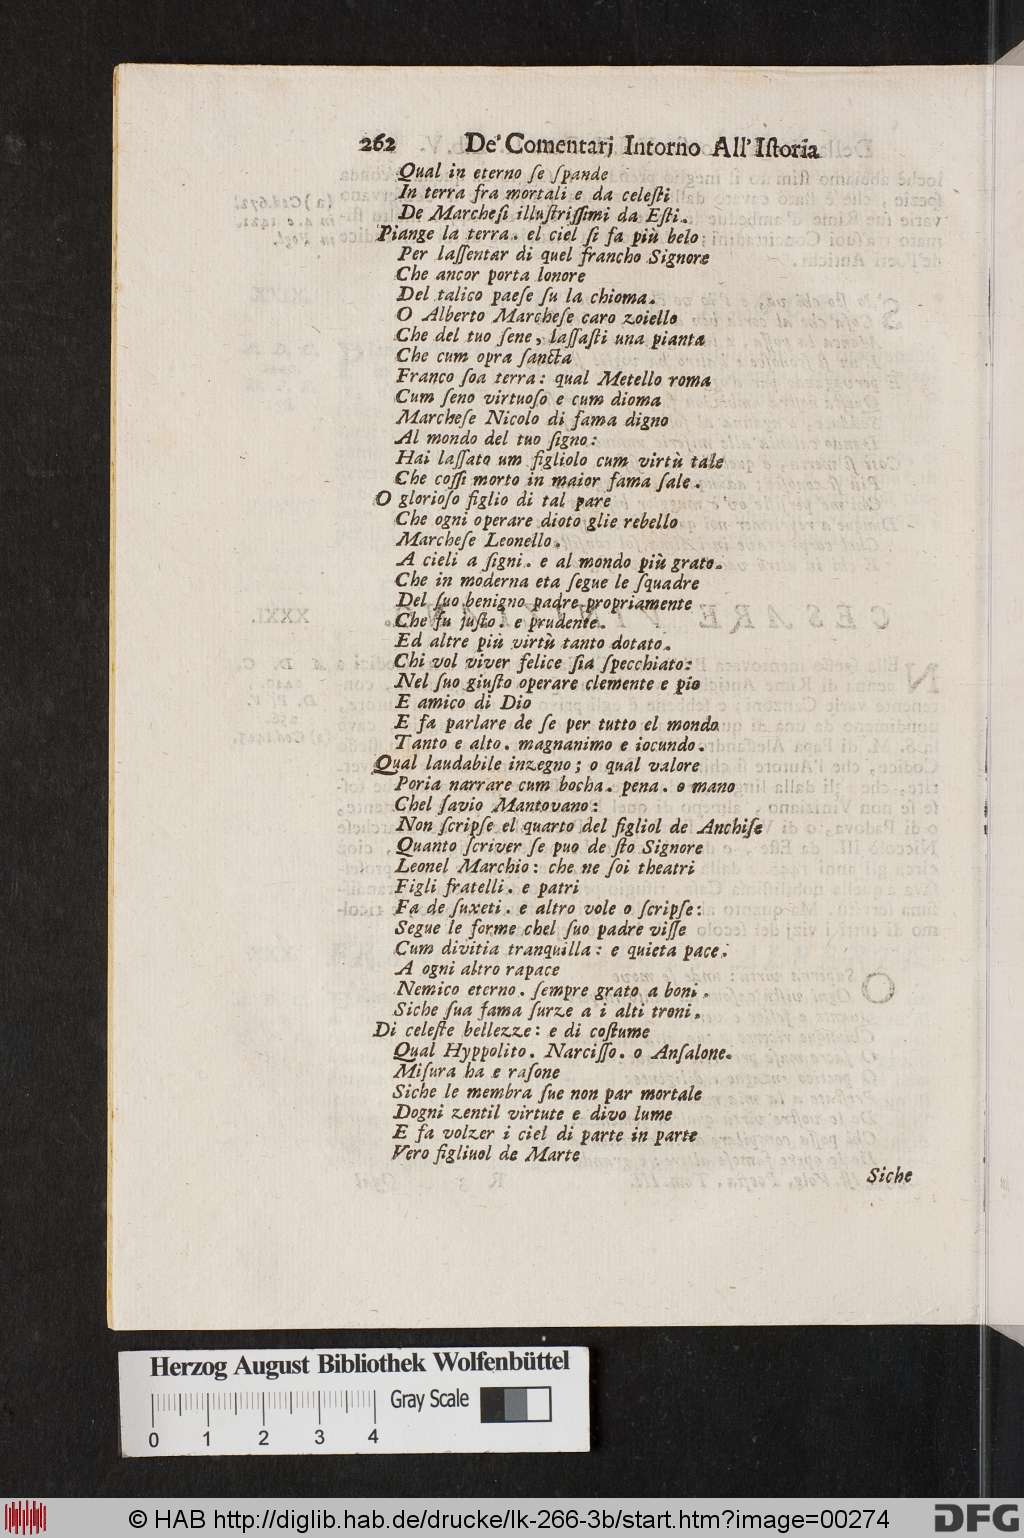 262 De' Comentarj Intorno All' Iſtoria
Qual in eterno ſe ſpande
In terra fra mortali e da celeſti
De Marcheſi illuſtriſſimi da Eſti.
Piange la terra. el ciel ſi fa più belo
Per laſſentar di quel francho Signore
Che ancor porta lonore
Del talico paeſe ſu la chioma.
O Alberto Marcheſe caro zoiello
Che del tuo ſene, laſſaſti una pianta
Che cum opra ſancta
Franco ſoa terra: qual Metello roma
Cum ſeno virtuoſo e cum dioma
Marcheſe Nicolo di fama digno
Al mondo del tuo ſigno:
Hai laſſato um figliolo cum virtù tale
Che coſſi morto in maior fama ſale.
O glorioſo figlio di tal pare
Che ogni operare dioto glie rebello
Marcheſe Leonello.
A cieli a ſigni. e al mondo più grato.
Che in moderna eta ſegue le ſquadre
Del ſuo benigno padre propriamente
Che fu juſto. e prudente.
Ed altre più virtù tanto dotato.
Chi vol viver felice ſia ſpecchiato:
Nel ſuo giuſto operare clemente e pio
E amico di Dio
E fa parlare de ſe per tutto el mondo
Tanto e alto. magnanimo e iocundo.
Qual laudabile inzegno; o qual valore
Poria narrare cum bocha. pena. o mano
Chel ſavio Mantovano:
Non ſcripſe el quarto del figliol de Anchiſe
Quanto ſcriver ſe puo de ſto Signore
Leonel Marchio: che ne ſoi theatri
Figli fratelli. e patri
Fa de ſuxeti. e altro vole o ſcripſe:
Segue le forme chel ſuo padre viſſe
Cum divitia tranquilla: e quieta pace.
A ogni altro rapace
Nemico eterno. ſempre grato a boni.
Siche ſua fama ſurze a i alti troni.
Di celeſte bellezze: e di coſtume
Qual Hyppolito. Narciſſo. o Anſalone.
Miſura ha e raſone
Siche le membra ſue non par mortale
Dogni zentil virtute e divo lume
E fa volzer i ciel di parte in parte
Vero figliuol de Marte
Siche
Herzog August Bibliothek Wolfenbüttel
Gray Scale
0 1 2 3 4
© HAB http://diglib.hab.de/drucke/lk-266-3b/start.htm?image=00274
DFG